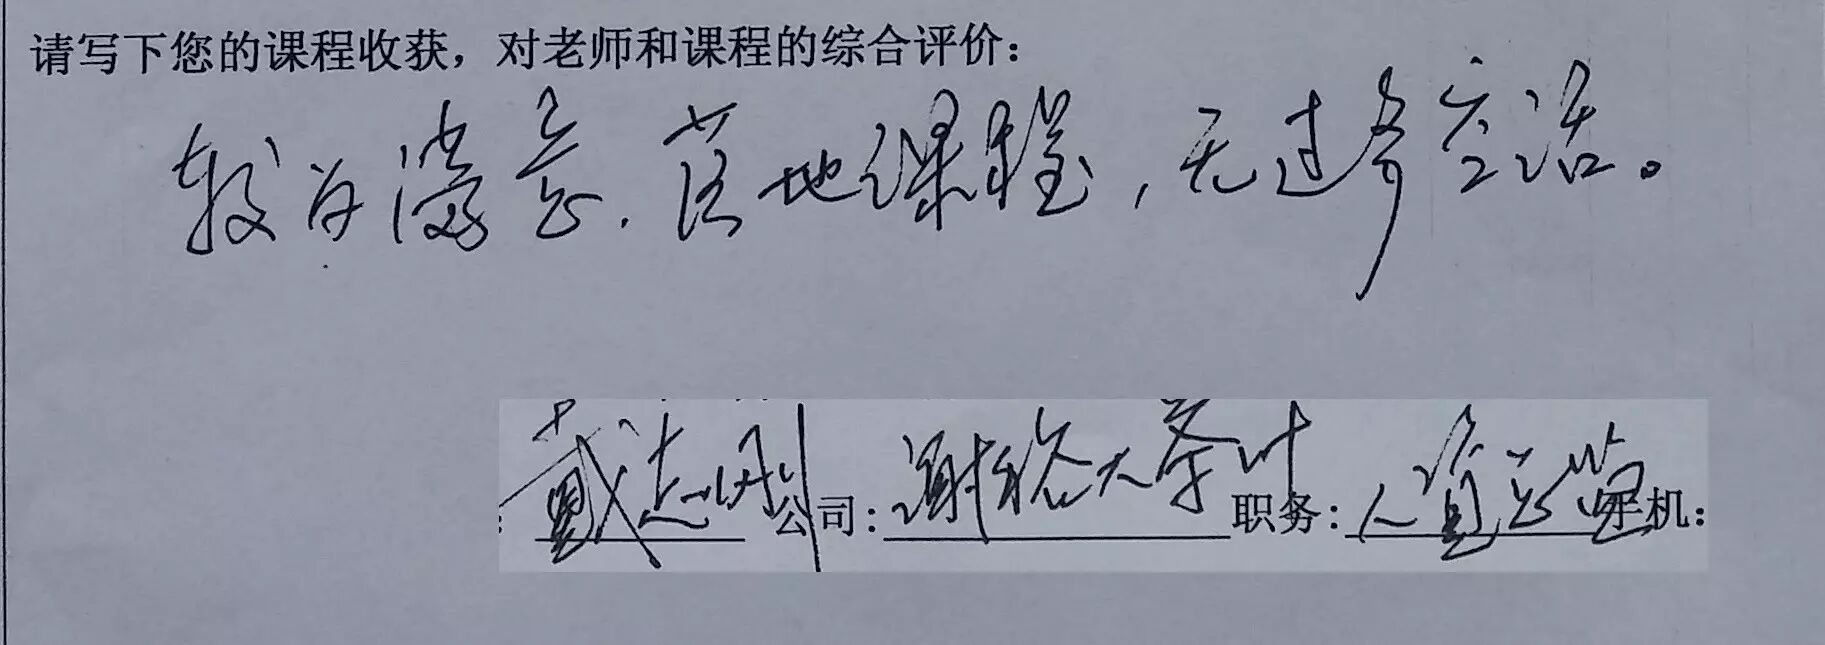 请写下您的课程收获，对老师和课程的综合评价：
较为满意，落地课程，无过多空话。
戴志刚 公司：谢裕大茶叶 职务：人资总监 机：